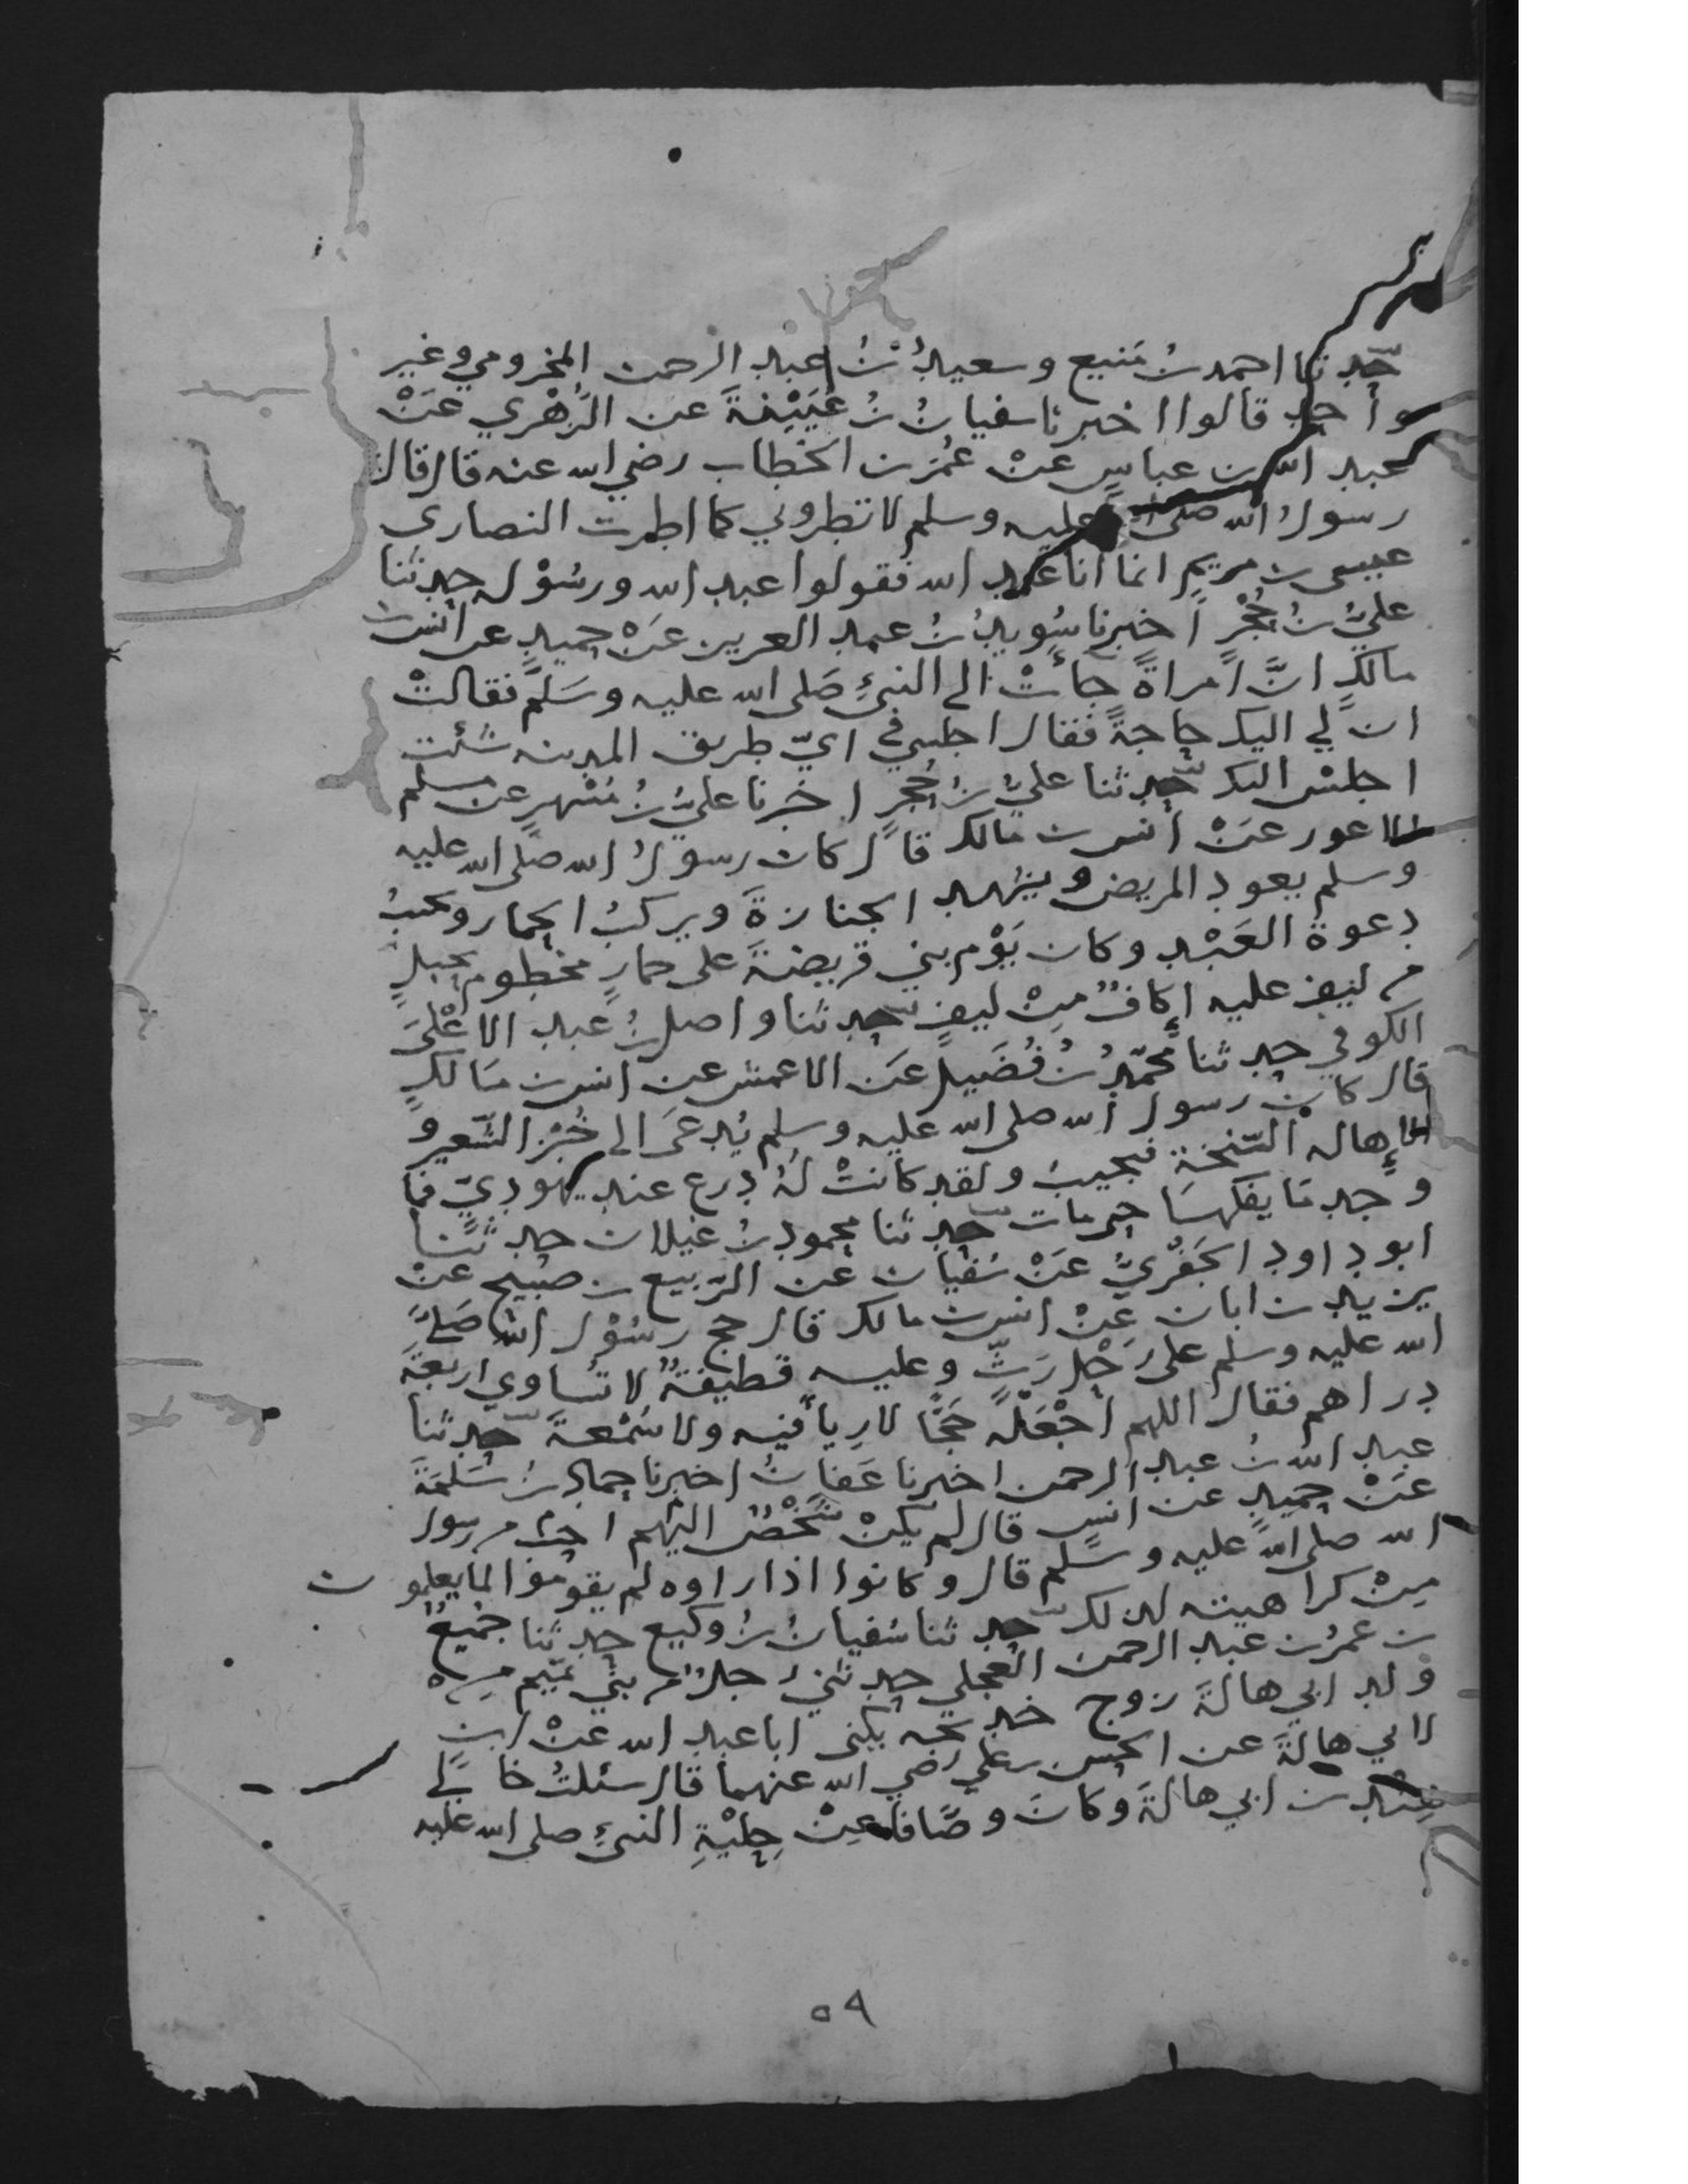 حدثنا احمد بن منيع وسعيدُ بنُ عبد الرحمن المخزومي وغير
واحد قالوا اخبرنا سفيانُ بنُ عُيَيْنةَ عن الزهري عَنْ
عبد الله بن عباسٍ عنْ عُمَر بن الخطاب رضي الله عنه قال قال
رسولُ الله صلى الله عليه وسلم لا تطروني كما اطرت النصارى
عيسى بن مريم انما انا عبد الله فقولوا عبد الله ورسُوْله حدثنا
عليُّ بنُ حُجْرٍ اخبرنا سُويدُ بنُ عبد العزيز عَنْ حميدٍ عن انس بن
مالكٍ انَّ امراةً جاءتْ الى النبيِّ صَلى الله عليه وسَلَّم فقالتْ
ان لي اليك حاجةً فقال اجلسي في ايّ طريق المدينه شئت
اجلسْ اليك حدثنا عليُّ بنُ حُجرٍ اخبرنا عليُّ بنُ مُسْهرٍ عن مسلم
الاعور عَنْ انس بن مالك قال كان رسولُ الله صلى الله عليه
وسلم يعود المريض ويشهد الجنازةَ ويركبُ الحمار ويجيبُ
دعوةَ العَبْد وكان يَوْم بني قريضةَ على حمارٍ مخطوم بحبلٍ
من ليف عليه إكافٌ مِنْ ليفٍ حدثنا واصل بنُ عبد الاعْلَى
الكوفي حدثنا محمّدُ بنُ فُضَيل عَن الاعمش عن انس بن مَالكٍ
قال كان رسول الله صلى الله عليه وسلم يُدعَى الى خُبْز الشّعير و
الإهاله السّنخةِ فيجيبُ ولقد كانتْ لهُ درع عند يهوديّ فما
وجد مَا يفكهَا حتى مات حدثنا محمود بنُ غيلان حدثنا
ابو داود الحَفْريُّ عَنْ سُفيان عن الرّبيع بن صبيح عنْ
يزيد بن ابان عَنْ انس بن مالك قال حج رسُوْل الله صَلى
الله عليه وسلم على رَحْلٍ رَثٍّ وعليه قطيفةٌ لا تُساوي اربعةَ
دراهم فقال اللهم اجْعَلْه حَجًّا لا رِياً فيه ولا سُمْعةَ حدثنا
عبد الله بنُ عبد الرحمن اخبرنا عَفانُ اخبرنا حمادُ بنُ سَلمَةَ
عَنْ حُميدٍ عن انسٍ قال لم يكنْ شَخْصٌ اليْهم احبَّ من رسول
الله صلى الله عليه وسلم قال وكانوا اذا راوه لم يقوموا لما يعلمون
مِنْ كراهيته لذلك حدثنا سُفيانُ بنُ وكيع حدثنا جُميعُ
بن عمرُ بن عبد الرحمن العجلي حدثني رجلٌ من بني تميم من
ولد ابي هالةَ زوج خديجه يكنى ابا عبد الله عنْ ابن
لابي هالةَ عن الحسن بن علي رضي الله عنهما قال سئلتُ خالي
هِنْد بن ابي هالةَ وكانَ وصَّافا عنْ حِلْيَةِ النبيّ صلى الله عليه
٥٩